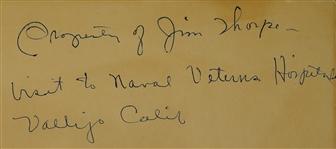 Property of Jim Thorpe -
Visit to Naval Veterns Hospital
Vallejo Calif